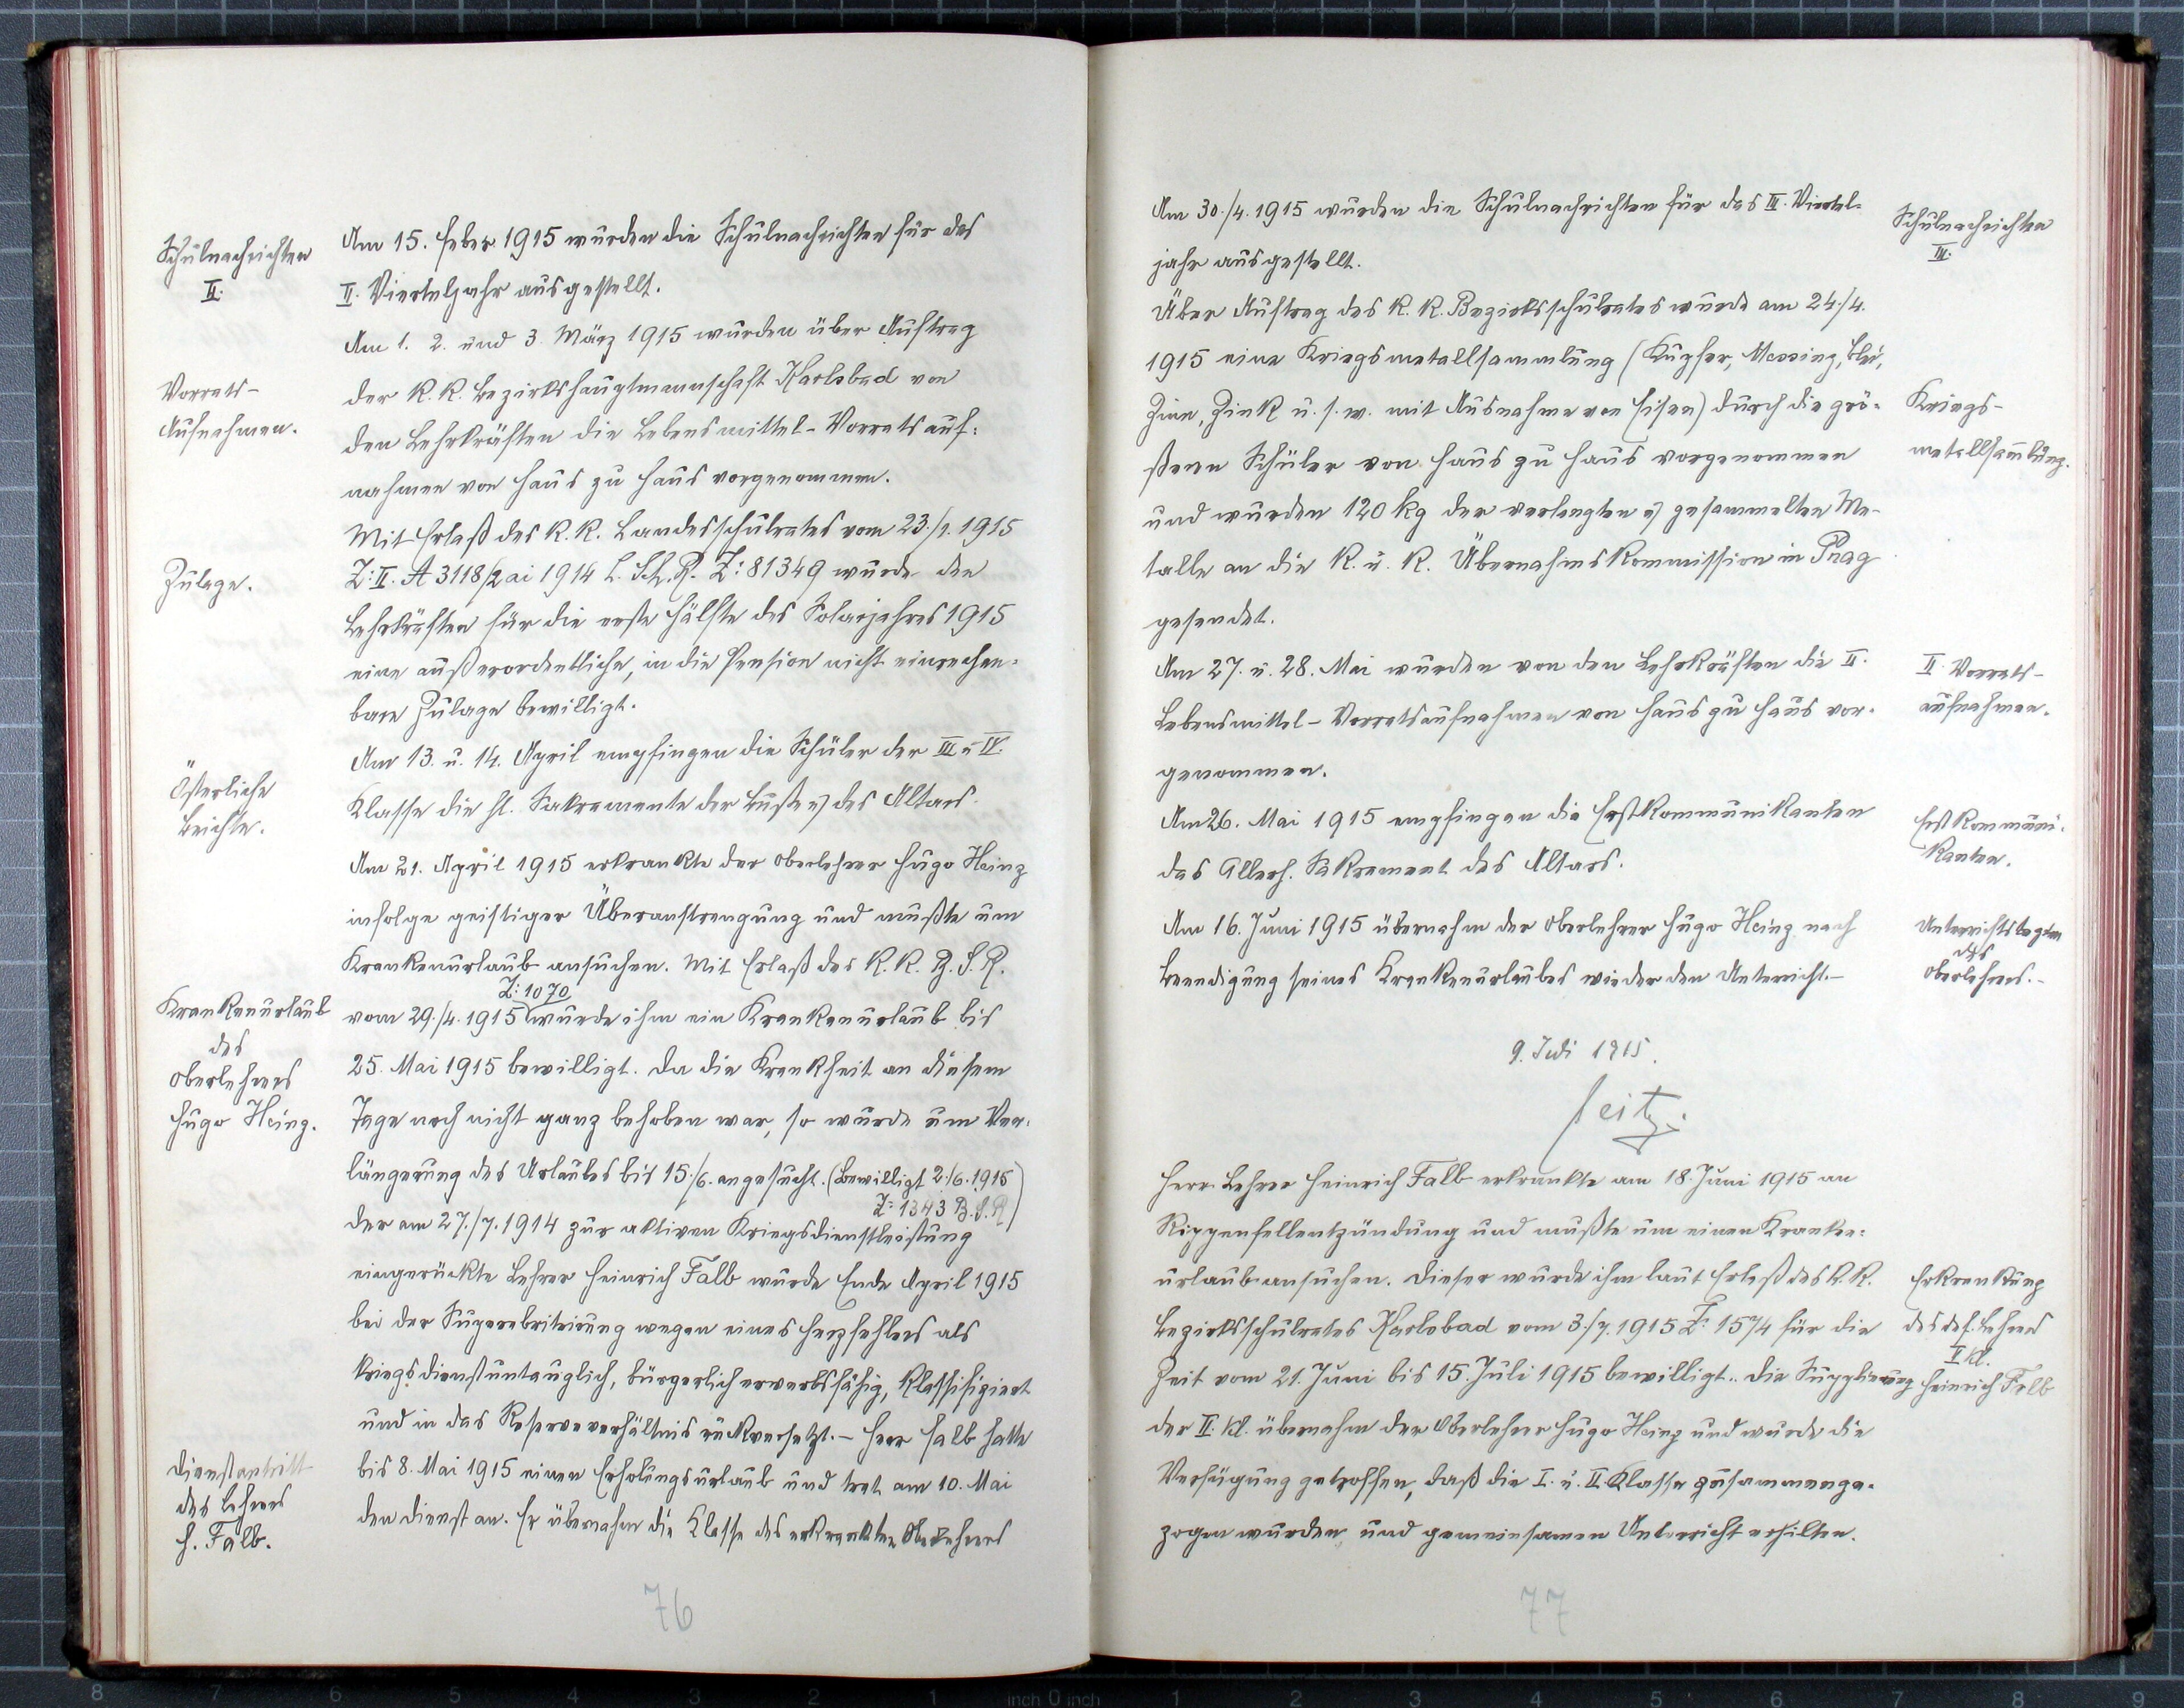 Schulnachrichten
II.
Am 15. Feber 1915 wurden die Schulnachrichten für das
II. Vierteljahr ausgestellt.
Am 1. 2. und 3. März 1915 wurden über Auftrag
Vorrats-
Aufnahmen.
der k. k. Bezirkshauptmannschaft Karlsbad von
den Lehrkräften die Lebensmittel-Vorratsauf=
nahmen von Haus zu Haus vorgenommen.
Mit Erlaß des k. k. Landesschulrates vom 23./1. 1915
Zulage.
Z: II. A 3118/2 ai 1914 L. Sch. R. Z: 81349 wurde den
Lehrkräften für die erste Hälfte des Solarjahres 1915
eine außerordentliche, in die Pension nicht einrechen=
bare Zulage bewilligt.
Am 13. u. 14. April empfingen die Schüler der III u IV.
Österliche
Beichte.
Klasse die hl. Sakramente der Buße u des Altars.
Am 21. April 1915 erkrankte der Oberlehrer Hugo Heinz
infolge geistiger Überanstrengung und mußte um
Krankenurlaub ansuchen. Mit Erlaß des k. k. B. S. R.
Z: 1070
Krankenurlaub
des
Oberlehrers
Hugo Heinz.
vom 29./4. 1915 wurde ihm ein Krankenurlaub bis
25. Mai 1915 bewilligt. Da die Krankheit an diesem
Tage noch nicht ganz behoben war, so wurde um Ver=
längerung des Urlaubes bis 15./6. angesucht. (Bewilligt 2./6. 1915
Z: 1343 B. S. R)
Der am 27./7. 1914 zur aktiven Kriegsdienstleistung
eingerückte Lehrer Heinrich Falb wurde Ende April 1915
bei der Superarbitrierung wegen eines Herzfehlers als
kriegsdienstuntauglich, bürgerlich erwerbsfähig, klassifiziert
und in das Reserveverhältnis rückversetzt. – Herr Falb hatte
Dienstantritt
des Lehrers
H. Falb.
bis 8. Mai 1915 einen Erholungsurlaub und trat am 10. Mai
den Dienst an. Er übernahm die Klasse des erkrankten Oberlehrers
76
Am 30./4. 1915 wurden die Schulnachrichten für das III. Viertel=
jahr ausgestellt.
Schulnachrichten
III.
Über Auftrag des k. k. Bezirksschulrates wurde am 24./4.
1915 eine Kriegsmetallsammlung (Kupfer, Messing, Blei,
Zinn, Zink u. s. w. mit Ausnahme von Eisen) durch die grö=
Kriegs-
metallsammlung.
ßeren Schüler von Haus zu Haus vorgenommen
und wurden 120 kg der verlangten u gesammelten Me-
talle an die k. u. k. Übernahmskommission in Prag
gesendet.
Am 27. u. 28. Mai wurden von den Lehrkräften die II.
II. Vorrats-
aufnahmen.
Lebensmittel-Vorratsaufnahmen von Haus zu Haus vor-
genommen.
Am 26. Mai 1915 empfingen die Erstkommunikanten
Erstkommuni-
kanten.
das Allerh. Sakrament des Altars.
Am 16. Juni 1915 übernahm der Oberlehrer Hugo Heinz nach
Unterrichtsbeginn
des
Oberlehrers. –
Beendigung seines Krankenurlaubes wieder den Unterricht. –
9. Juli 1915.
Seitz.
Herr Lehrer Heinrich Falb erkrankte am 18. Juni 1915 an
Rippenfellentzündung und mußte um einen Kranken=
urlaub ansuchen. Dieser wurde ihm laut Erlaß des k. k.
Erkrankung
des def. Lehrers
II Kl.
Heinrich Falb
Bezirksschulrates Karlsbad vom 3./7. 1915 Z: 1574 für die
Zeit vom 21. Juni bis 15. Juli 1915 bewilligt. Die Supplierung
der II. Kl. übernahm der Oberlehrer Hugo Heinz und wurde die
Verfügung getroffen, daß die I. u. II. Klasse zusammenge-
zogen wurden und gemeinsamen Unterricht erhilten.
77
8 7 6 5 4 3 2 1 inch 0 inch 1 2 3 4 5 6 7 8 9